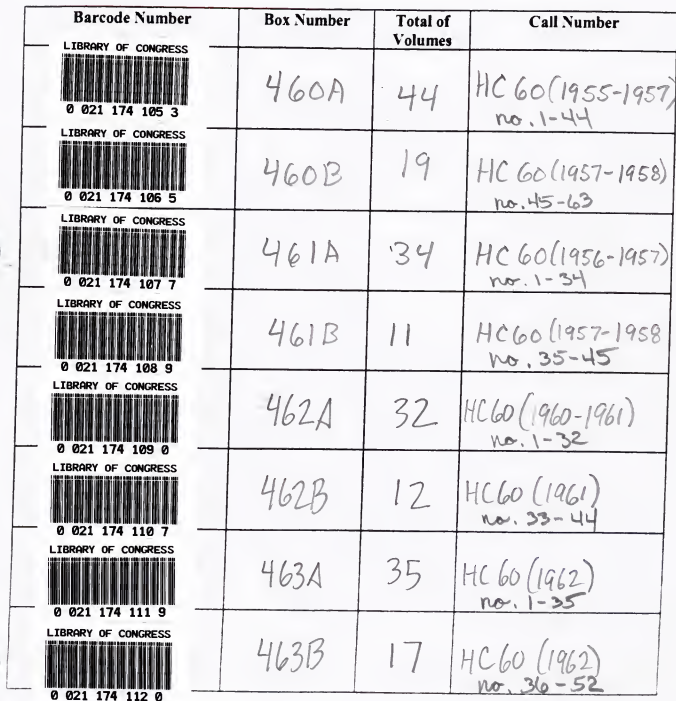 Barcode Number Box Number Total of Volumes Call Number
LIBRARY OF CONGRESS
0 021 174 105 3
460A 44 HC 60(1955-1957)
no. 1-44
LIBRARY OF CONGRESS
0 021 174 106 5
460B 19 HC 60(1957-1958)
no. 45-63
LIBRARY OF CONGRESS
0 021 174 107 7
461A 34 HC 60(1956-1957)
no. 1-34
LIBRARY OF CONGRESS
0 021 174 108 9
461B 11 HC 60(1957-1958
no. 35-45
LIBRARY OF CONGRESS
0 021 174 109 0
462A 32 HC60 (1960-1961)
no. 1-32
LIBRARY OF CONGRESS
0 021 174 110 7
462B 12 HC60 (1961)
no. 33-44
LIBRARY OF CONGRESS
0 021 174 111 9
463A 35 HC 60 (1962)
no. 1-35
LIBRARY OF CONGRESS
0 021 174 112 0
463B 17 HC 60 (1962)
no. 36-52